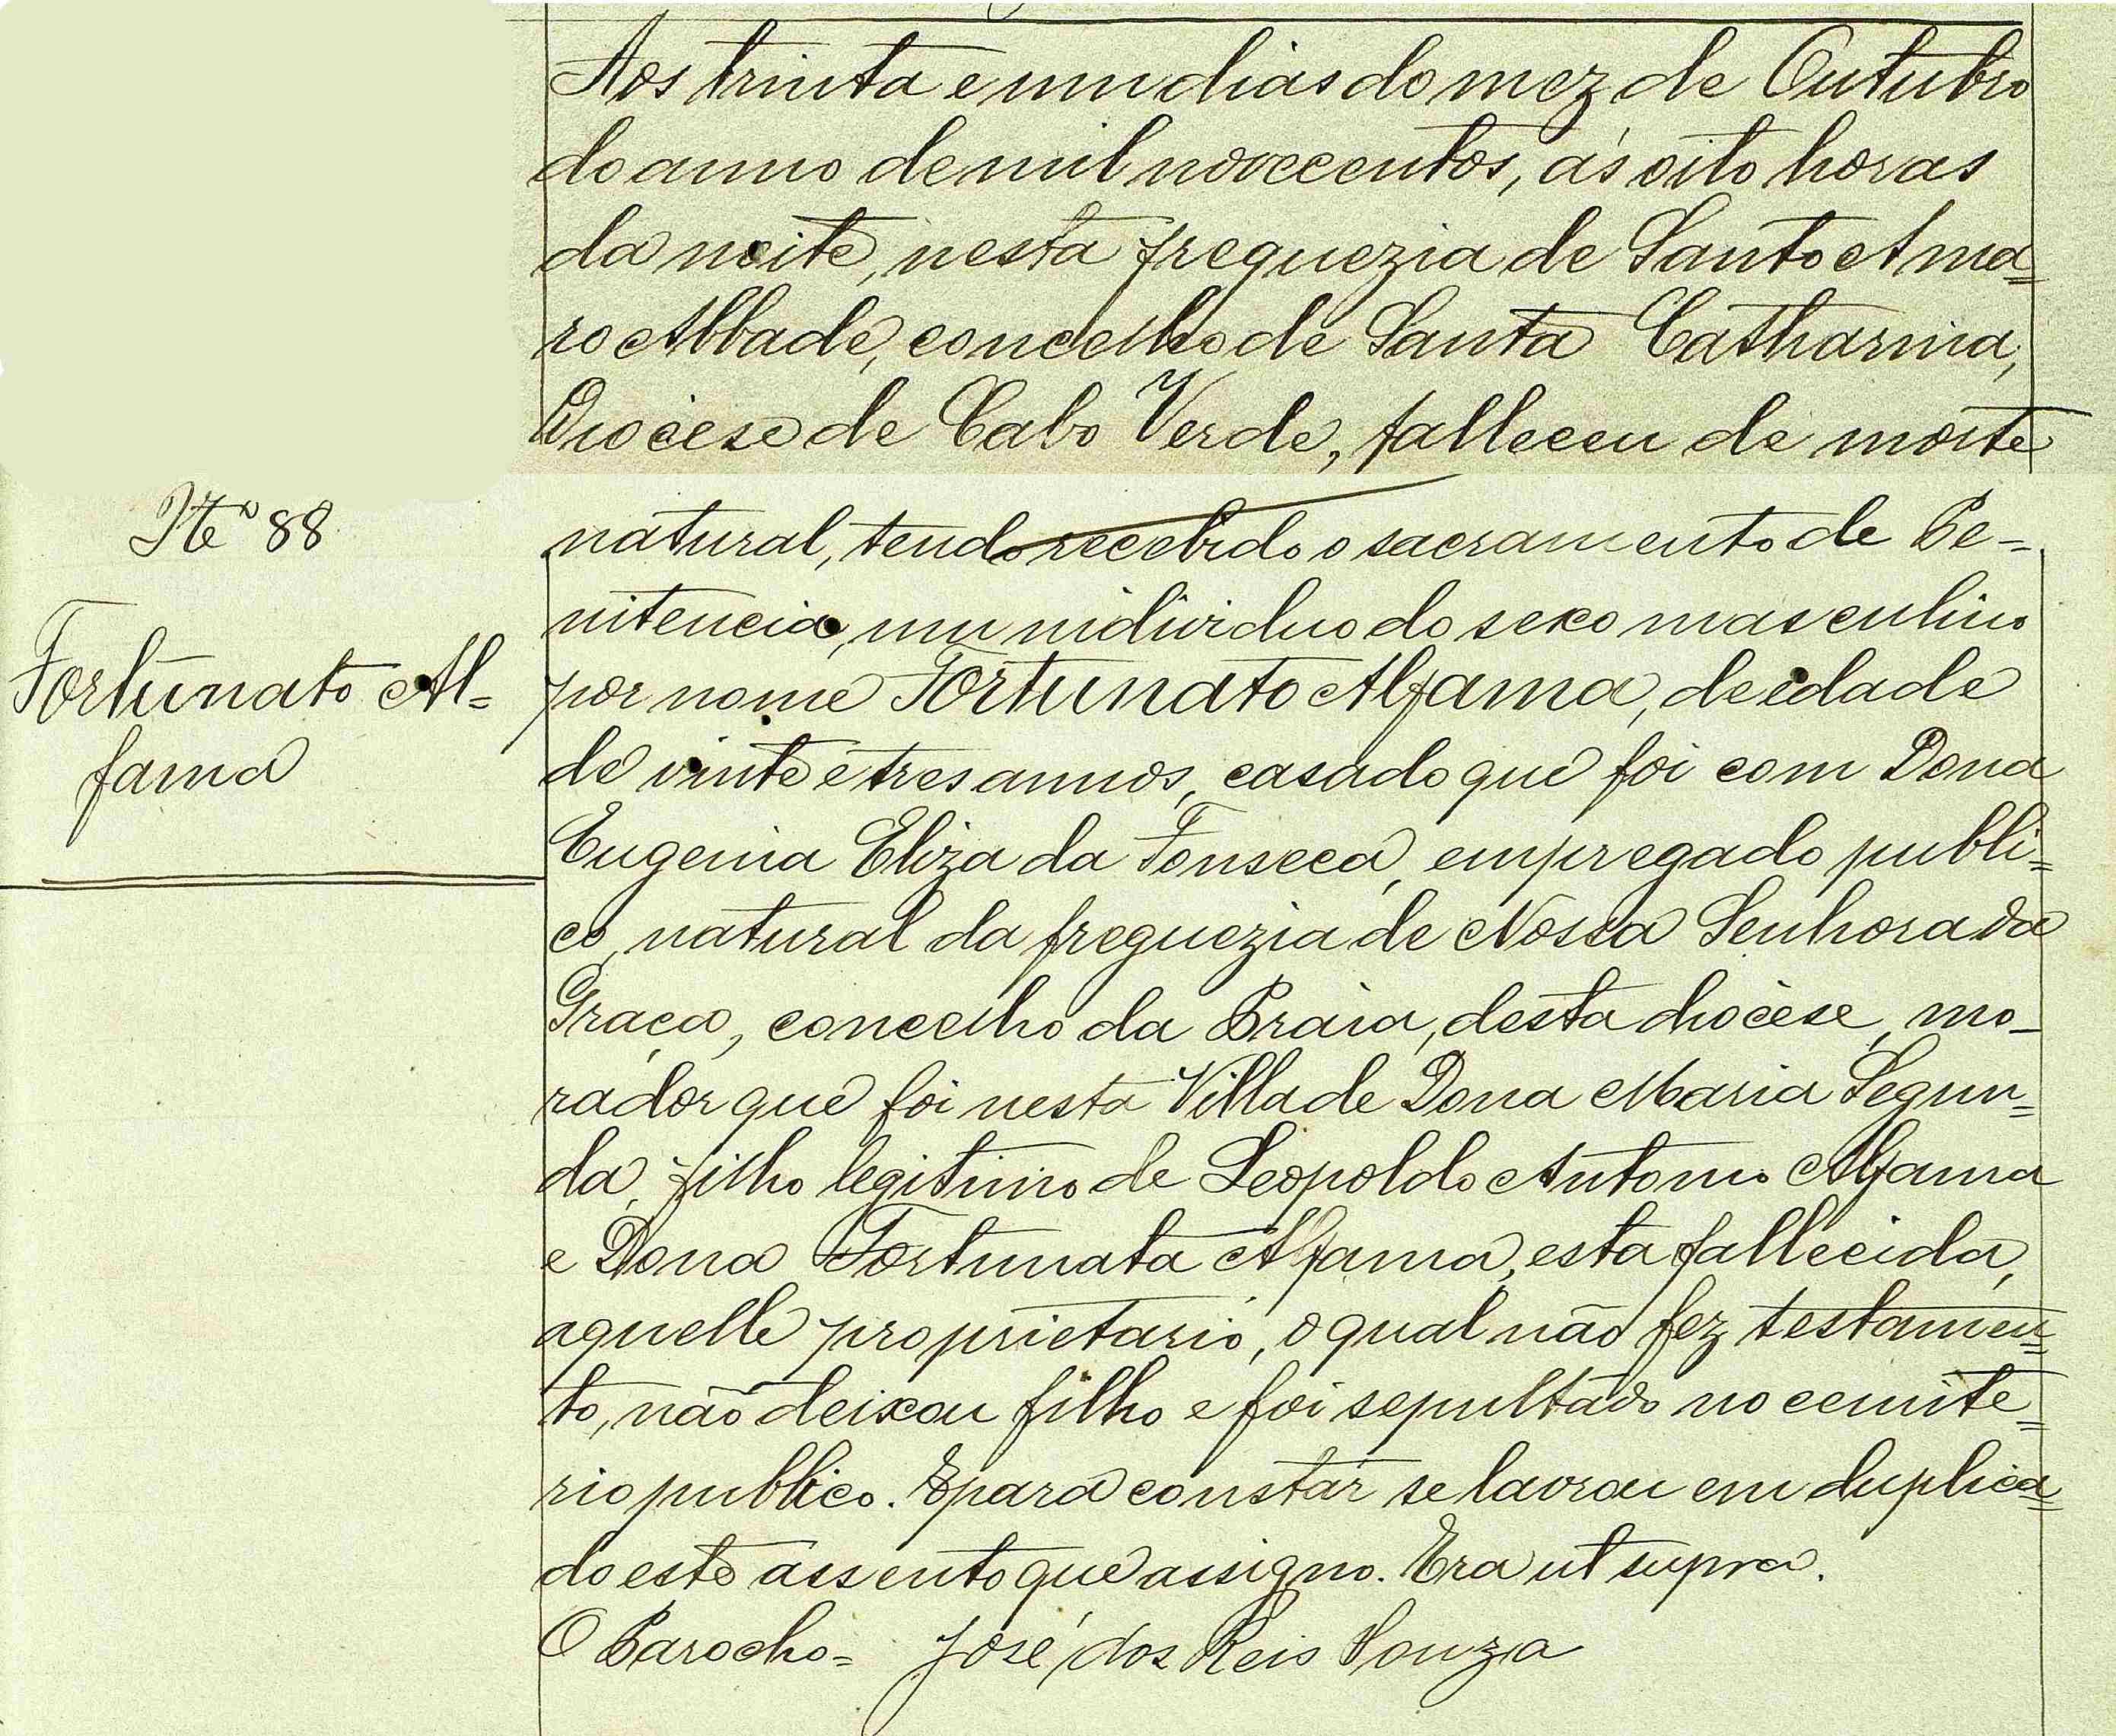 Aos trinta e um dias do mez de Outubro
do anno de mil novecentos, ás oito horas
da noite, nesta freguezia de Santo Ama=
ro Abbade, concelho de Santa Catharina,
Diocese de Cabo Verde, falleceu de morte
Nº 88
natural, tendo recebido o sacramento de Pe=
nitencia, um individuo do sexo masculino
Fortunato Al=
fama
por nome Fortunato Alfama, de edade
de vinte e tres annos, casado que foi com Dona
Eugenia Eliza da Fonseca, empregado publi=
co, natural da freguezia de Nossa Senhora da
Graça, concelho da Praia, desta diocese, mo-
rador que foi nesta Villa de Dona Maria Segun=
da, filho legitimo de Leopoldo Antonio Alfama
e Dona Fortunata Alfama, esta fallecida,
aquelle proprietario, o qual não fez testamen=
to, não deixou filho e foi sepultado no cemite=
rio publico. E para constar se lavrou em duplica=
do este assento que assigno. Era ut supra.
O Parocho= José dos Reis Souza